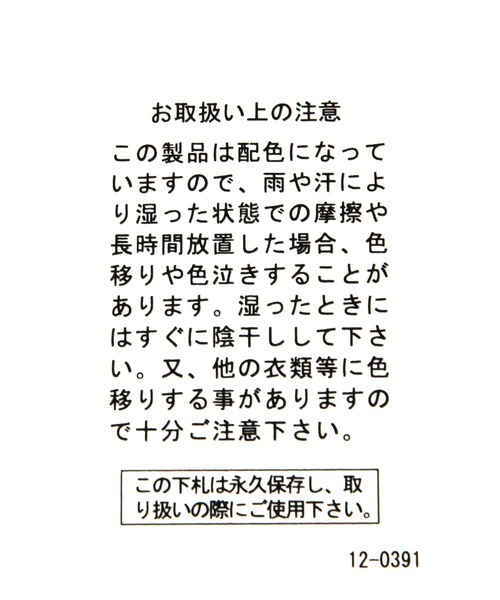 お取扱い上の注意
この製品は配色になって
いますので、雨や汗によ
り湿った状態での摩擦や
長時間放置した場合、色
移りや色泣きすることが
あります。湿ったときに
はすぐに陰干しして下さ
い。又、他の衣類等に色
移りする事がありますの
で十分ご注意下さい。
この下札は永久保存し、取
り扱いの際にご使用下さい。
12-0391